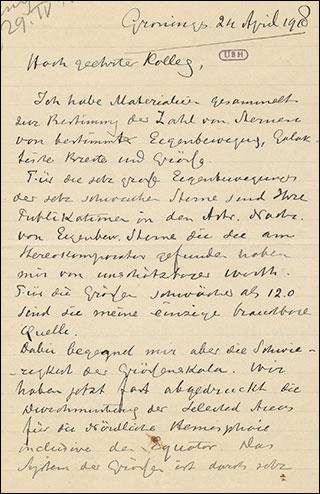 29. IV
Groningen 24 April 1918
UBH
Hoch geehrter Kolleg,
Ich habe Materialien gesammelt
zur Bestimmung der Zahl von Sternen
von bestimmter Eigenbewegung, Galak-
tische Breite und Grösse.
Für die sehr grosse Eigenbewegungen
der sehr schwachen Sterne sind Ihre
Publikationen in den Astr. Nachr.
von Eigenbew. Sterne die Sie am
Stereokomparator gefunden haben
mir von unschätzbarer werth.
Für die Grössen schwächer als 12.0
sind sie meine einzige brauchbare
Quelle.
Dabei begegnet mir aber die Schwie-
rigkeit der Grössenskala. Wir
haben jetzt fast abgedruckt die
Durchmusterung der Selected Areas
für die Nördliche Hemisphäre
inclusive den Equator Das
System der Grössen ist durch sehr